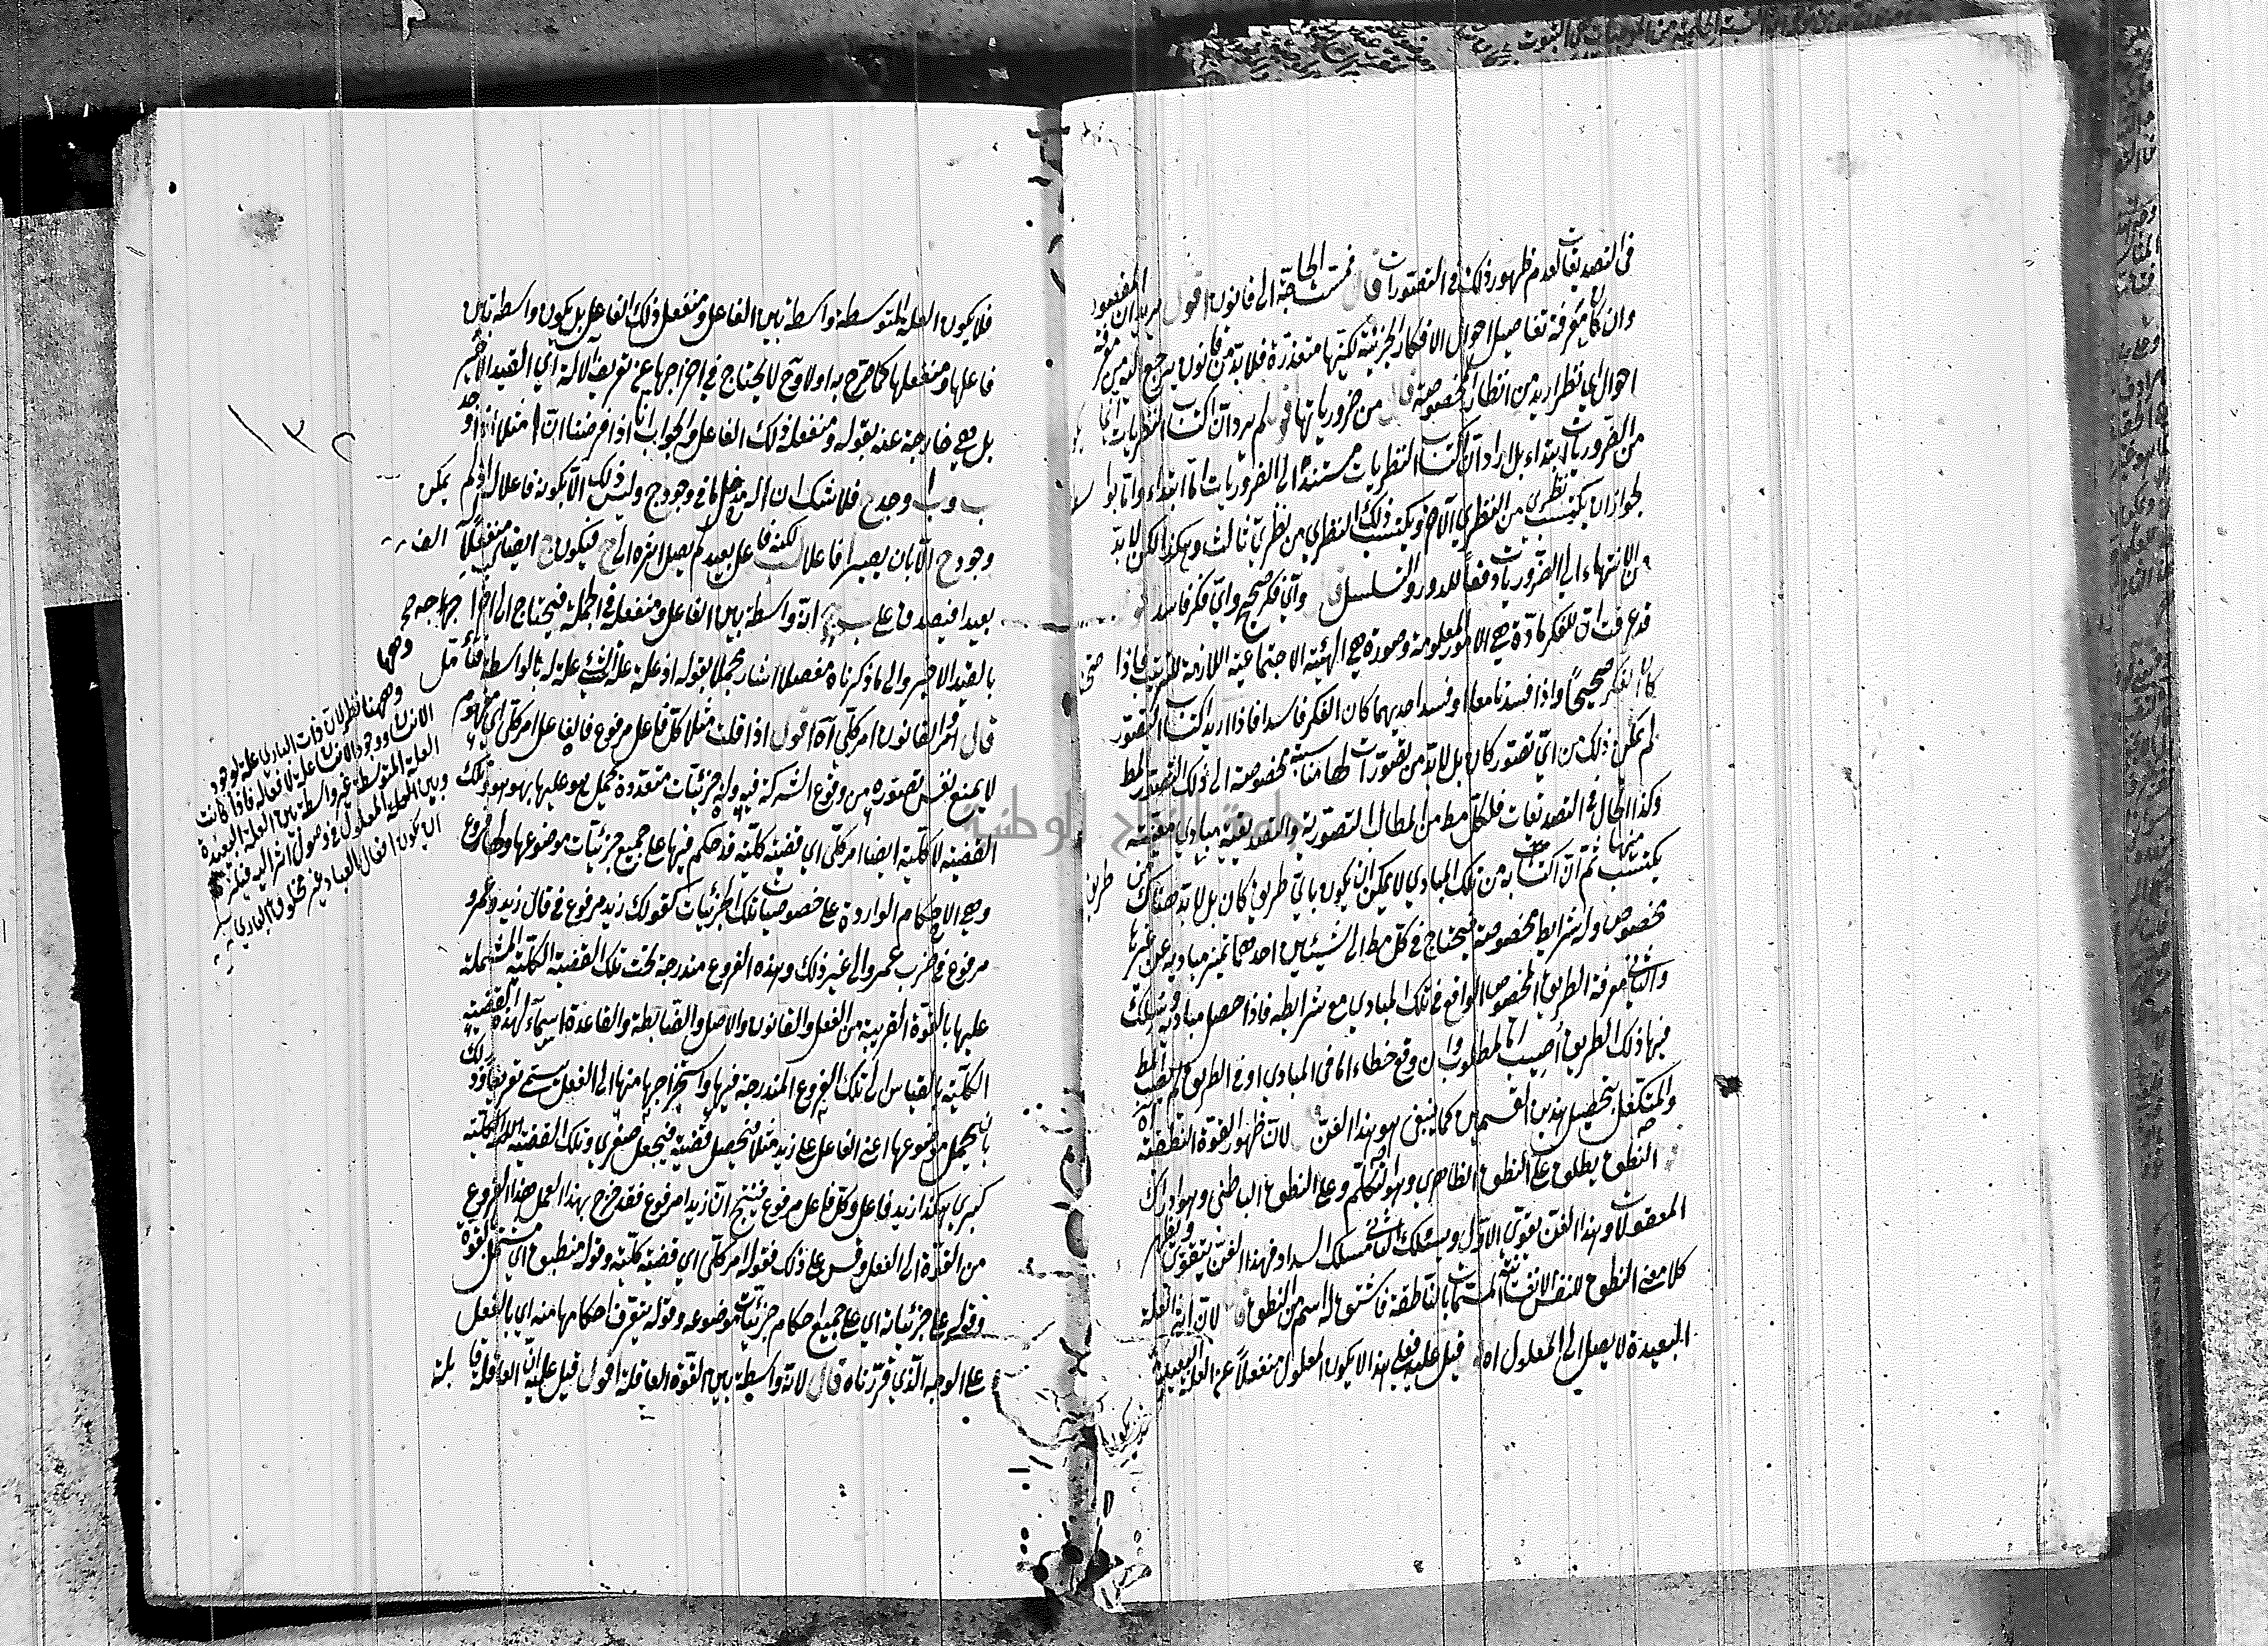 في التصديقات لعدم ظهور ذلك في التصورات قال فمست الحاجة الى قانون اقول يريد ان المقصود
وان كان معرفة تفاصيل احوال الافكار الجزئية لكنها متعذرة فلا بد من قانون يرجع اليه في معرفة
احوال اي نظر اريد من انظار المخصوصة قال من ضرورياتها اقول لم يرد ان اكتساب النظريات انما
من الضروريات ابتداء بل اراد ان اكتساب النظريات مستند الى الضروريات اما ابتداء واما بواسطة
لجواز ان يكتسب نظري من النظري الآخر ويكتسب ذلك النظري من نظري ثالث وهكذا لكن لا بد
من الانتهاء الى الضروريات دفعا للدور والتسلسل قال واي فكر صحيح واي فكر فاسد
قد عرفت ان للفكر مادة هي الامور المعلومة وصورة هي الهيئة الاجتماعية اللازمة للترتيب فاذا صحتا
كان الفكر صحيحا واذا فسدتا معا او فسد احديهما كان الفكر فاسدا فاذا اريد اكتساب التصور
لم يمكن ذلك من اي تصور كان بل لا بد من تصورات لها مناسبة مخصوصة الى ذلك التصور المط
وكذا الحال في التصديقات فلكل مط من المطالب التصورية والتصديقية مبادي معينة
يكتسب منها ثم ان اكتسابه من تلك المبادي لا يمكن ان يكون باي طريق كان بل لا بد هناك من طريق
مخصوص وله شرايط مخصوصة فيحتاج في كل مط الى الشيئين احدهما تميز مباديه عن غيرها
والثاني معرفة الطريق المخصوص الواقع في تلك المبادي مع شرايطه فاذا حصل مباديه وسلك
فيها ذلك الطريق اصيب الى المطلوب وان وقع خطاء اما في المبادي او في الطريق لم يصب المط
والمتكفل بتحصيل هذين القسمين كما ينبغي هو هذا الفن قال لان ظهور القوة النطقية اه
النطق يطلق على النطق الظاهري وهو التكلم وعلى النطق الباطني وهو ادراك
المعقولات وهذا الفن يقوى الاول ويسلك بالثاني مسلك السداد فبهذا الفن يتقوى ويظهر
كلا معني النطق للنفس الانسانية المسماة بالناطقة فاشتق له اسم من النطق قال لان اثر العلة
البعيدة لا يصل الى المعلول اه قيل عليه فعلى هذا لا يكون المعلول منفعلا عن العلة البعيدة
فلا يكون العلة المتوسطة واسطة بين الفاعل ومنفعل ذلك الفاعل بل يكون واسطة بين
فاعلها ومنفعلها كما صرح به اولا وح لا يحتاج في اخراجها عن تعريف الآلة الى القيد الاخير
بل هي خارجة عنه بقوله ومنفعله ذلك الفاعل والجواب انا اذا فرضنا ان ا مثلا اوجد
ب وب اوجد ج فلا شك ان ا له مدخل في وجود ج وليس ذلك الا بكونه فاعلا له ولم يمكن
وجود ج الا بان يصير ا فاعلا لكنه فاعل بعيد لم يصل اثره الى ج فيكون ج ايضا منفعلا
بعيدا فيصدق على ب انه واسطة بين الفاعل ومنفعله في الجملة فيحتاج الى اخراجها
بالقيد الاخير والى ما ذكرناه مفصلا اشار مجملا بقوله اذ علة علة الشئ علة له بالواسطة فتأمل
قال والقانون امر كلي آه اقول اذا قلت مثلا كل فاعل مرفوع فالفاعل امر كلي اي مفهوم
لا يمنع نفس تصوره من وقوع الشركة فيه وله جزئيات متعددة يحمل هو عليها بهو هو وتلك
القضية الكلية ايضا امر كلي اي قضية كلية قد حكم فيها على جميع جزئيات موضوعها ولها فروع
وهي الاحكام الواردة على خصوصيات تلك الجزئيات كقولك زيد مرفوع في قال زيد وعمرو
مرفوع في ضرب عمرو الى غير ذلك وهذه الفروع مندرجة تحت تلك القضية الكلية المشتملة
عليها بالقوة القريبة من الفعل والقانون والاصل والضابطة والقاعدة اسماء لهذه القضية
الكلية بالقياس الى تلك الفروع المندرجة فيها واستخراجها منها الى الفعل يسمى تفريعا وذلك
بان يحمل موضوعها اعني الفاعل على زيد مثلا فيحصل قضية فيجعل صغرى وتلك القضية الكلية
كبرى هكذا زيد فاعل وكل فاعل مرفوع فينتج ان زيدا مرفوع فقد خرج بهذا العمل هذا الفروع
من القوة الى الفعل وقس على ذلك فقوله امر كلي اي قضية كلية وقوله منطبق اي مشتمل بالقوة
وقوله على جزئياته اي على جميع احكام جزئيات موضوعه وقوله يتعرف احكامها منه اي بالفعل
على الوجه الذي قررناه قال لانه واسطة بين القوة العاقلة اقول قيل عليه ان العاقلة قابلة
وههنا نظر لان ذات البادي علة لوجود
الانسان ووجود الانسان علة لافعاله فاذا كانت
العلة المتوسطة غير واسطة بين العلة البعيدة
وبين المعلول في وصول اثر اليه فيلزم
ان يكون افعال العباد غير مخلوق البادي
جامعة النجاح الوطنية